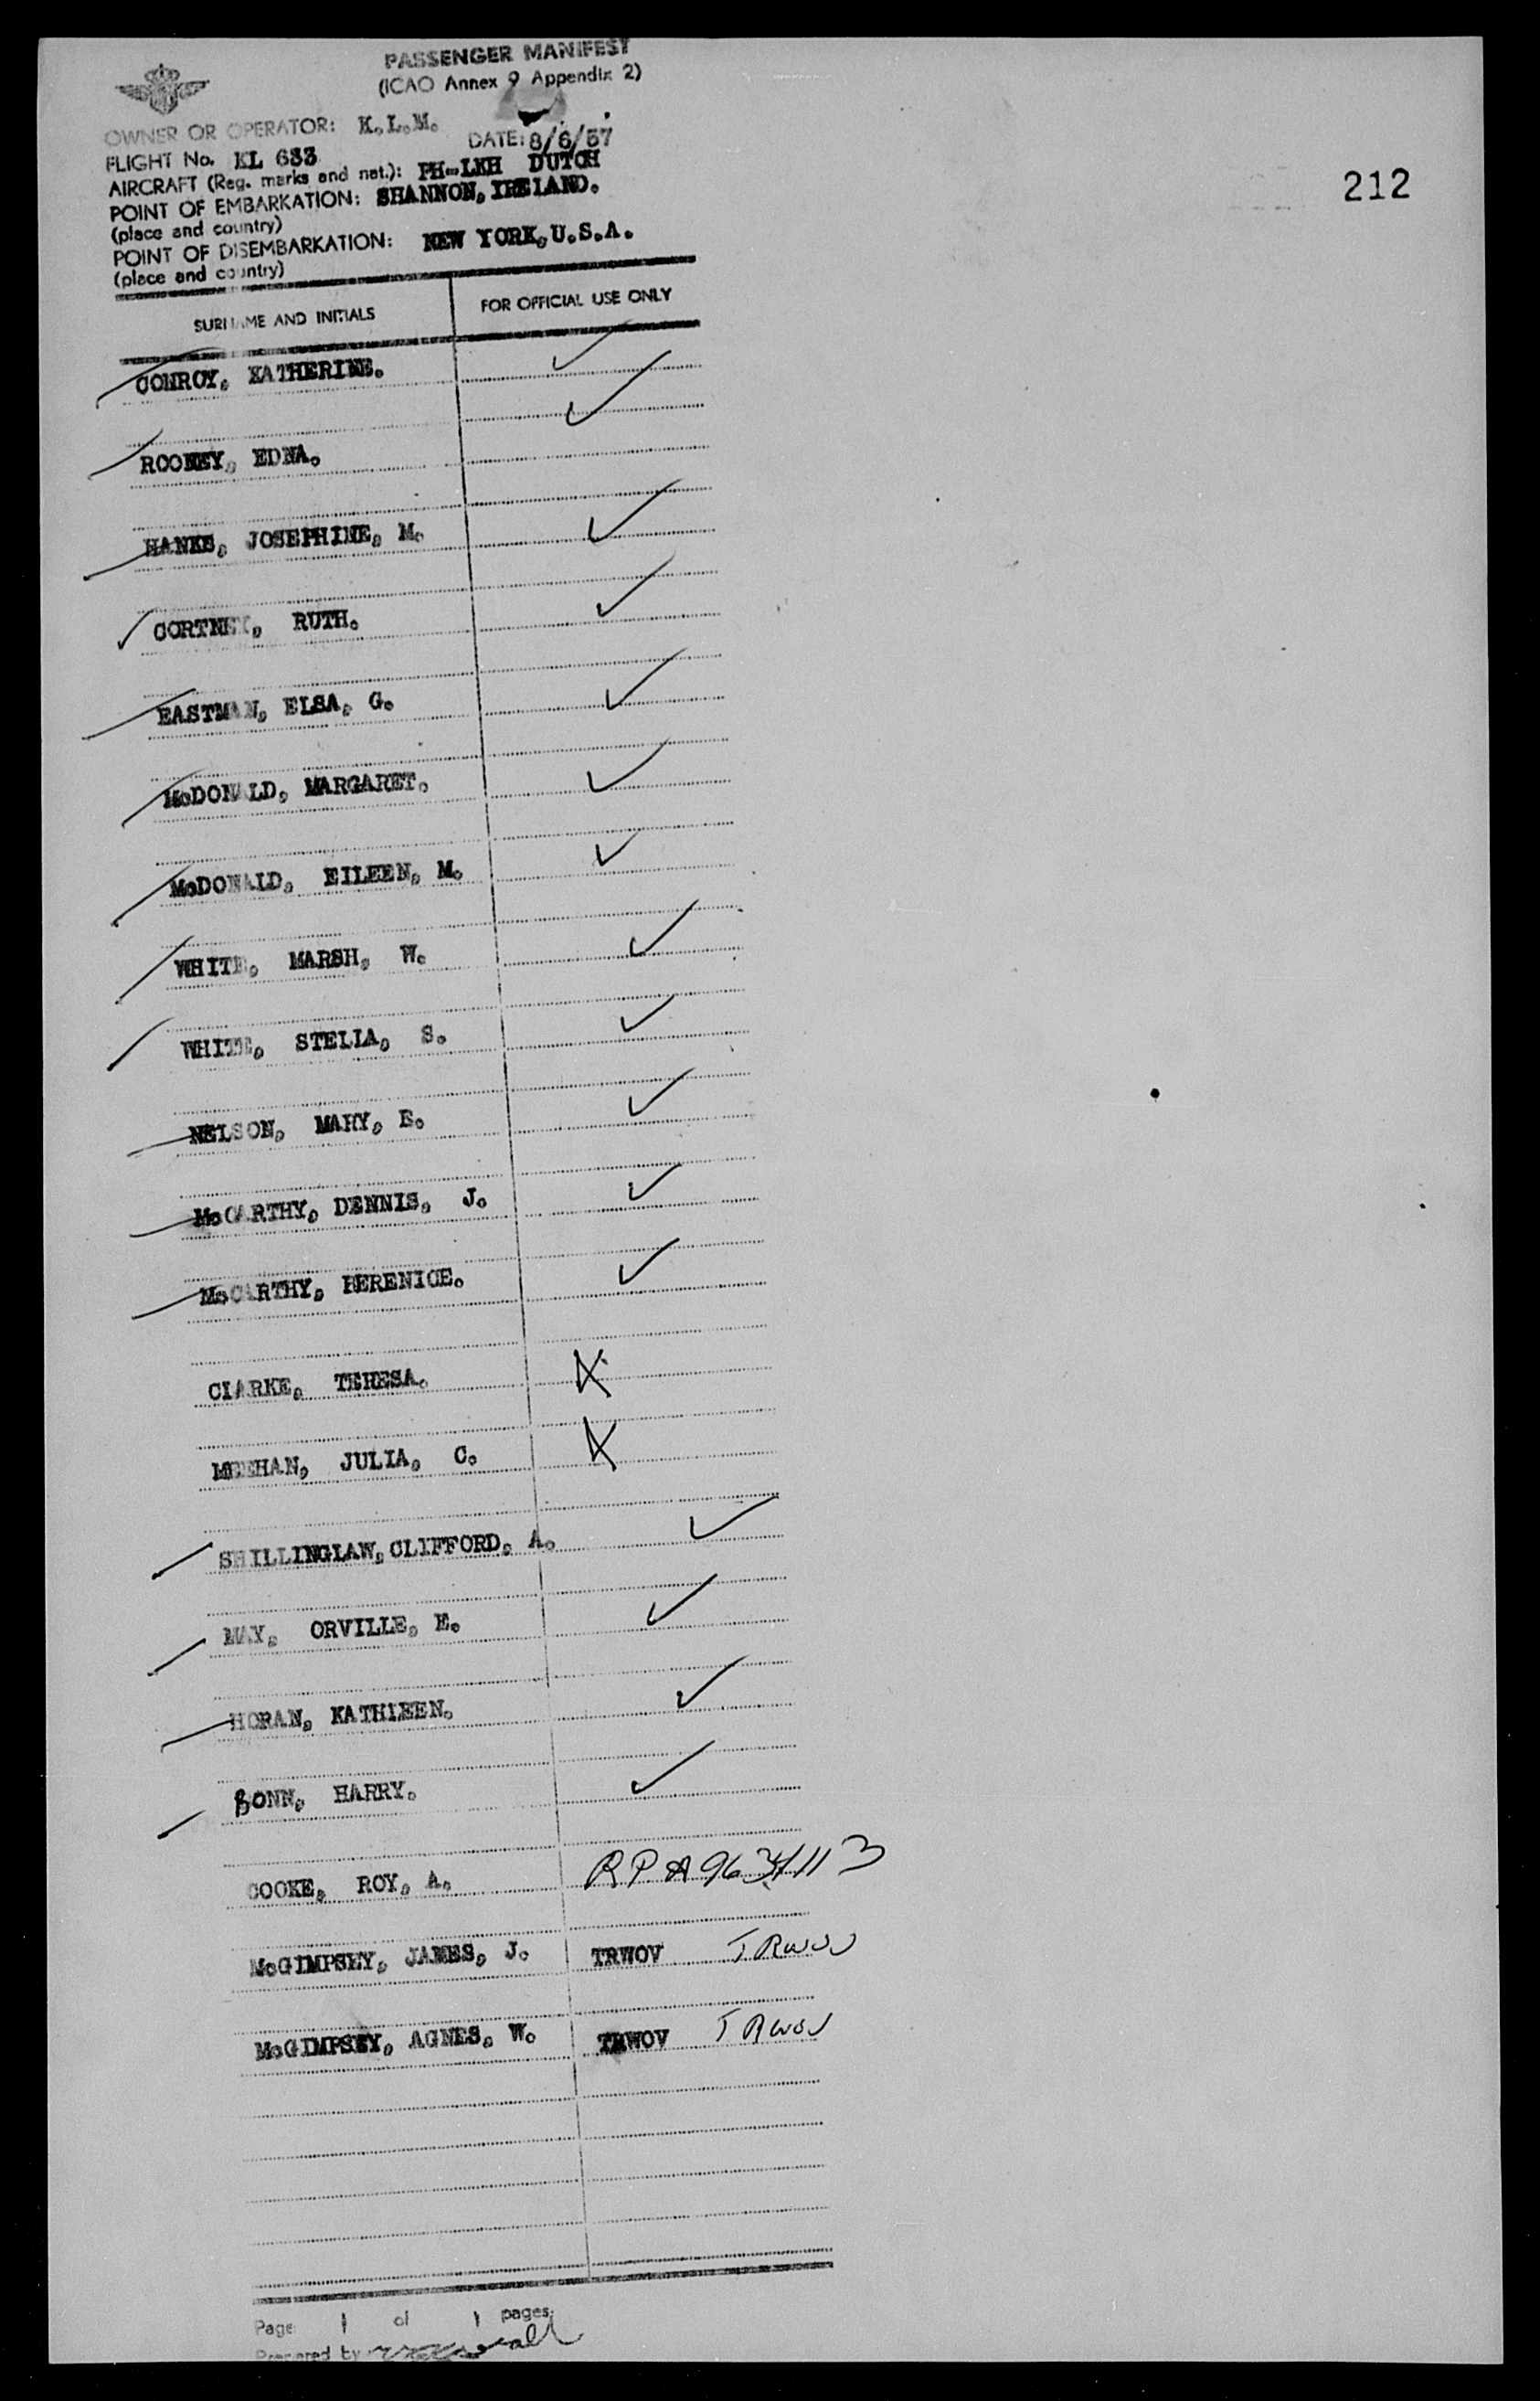 PASSENGER MANIFEST
(ICAO Annex 9 Appendix 2)
OWNER OR OPERATOR: K.L.M.
DATE: 8/6/57
FLIGHT No. KL 633
AIRCRAFT (Reg. marks and nat.): PH-LKH DUTCH
POINT OF EMBARKATION: SHANNON, IRELAND.
(place and country)
POINT OF DISEMBARKATION: NEW YORK, U.S.A.
(place and country)
212
SURNAME AND INITIALS FOR OFFICIAL USE ONLY
CONROY, KATHERINE.
ROONEY, EDNA.
HANKS, JOSEPHINE, M.
CORTNEY, RUTH.
EASTMAN, ELSA, G.
McDONALD, MARGARET.
McDONALD, EILEEN, M.
WHITE, MARSH, W.
WHITE, STELLA, S.
NELSON, MARY, E.
McCARTHY, DENNIS, J.
McCARTHY, BERENICE.
CLARKE, TERESA.
MEEHAN, JULIA, C.
SHILLINGLAW, CLIFFORD, A.
MAY, ORVILLE, E.
HORAN, KATHLEEN.
BONN, HARRY.
COOKE, ROY, A. RP A9634113
McGIMPSEY, JAMES, J. TRWOV TRWOV
McGIMPSEY, AGNES, W. TRWOV TRWOV
Page 1 of 1 pages
Prepared by